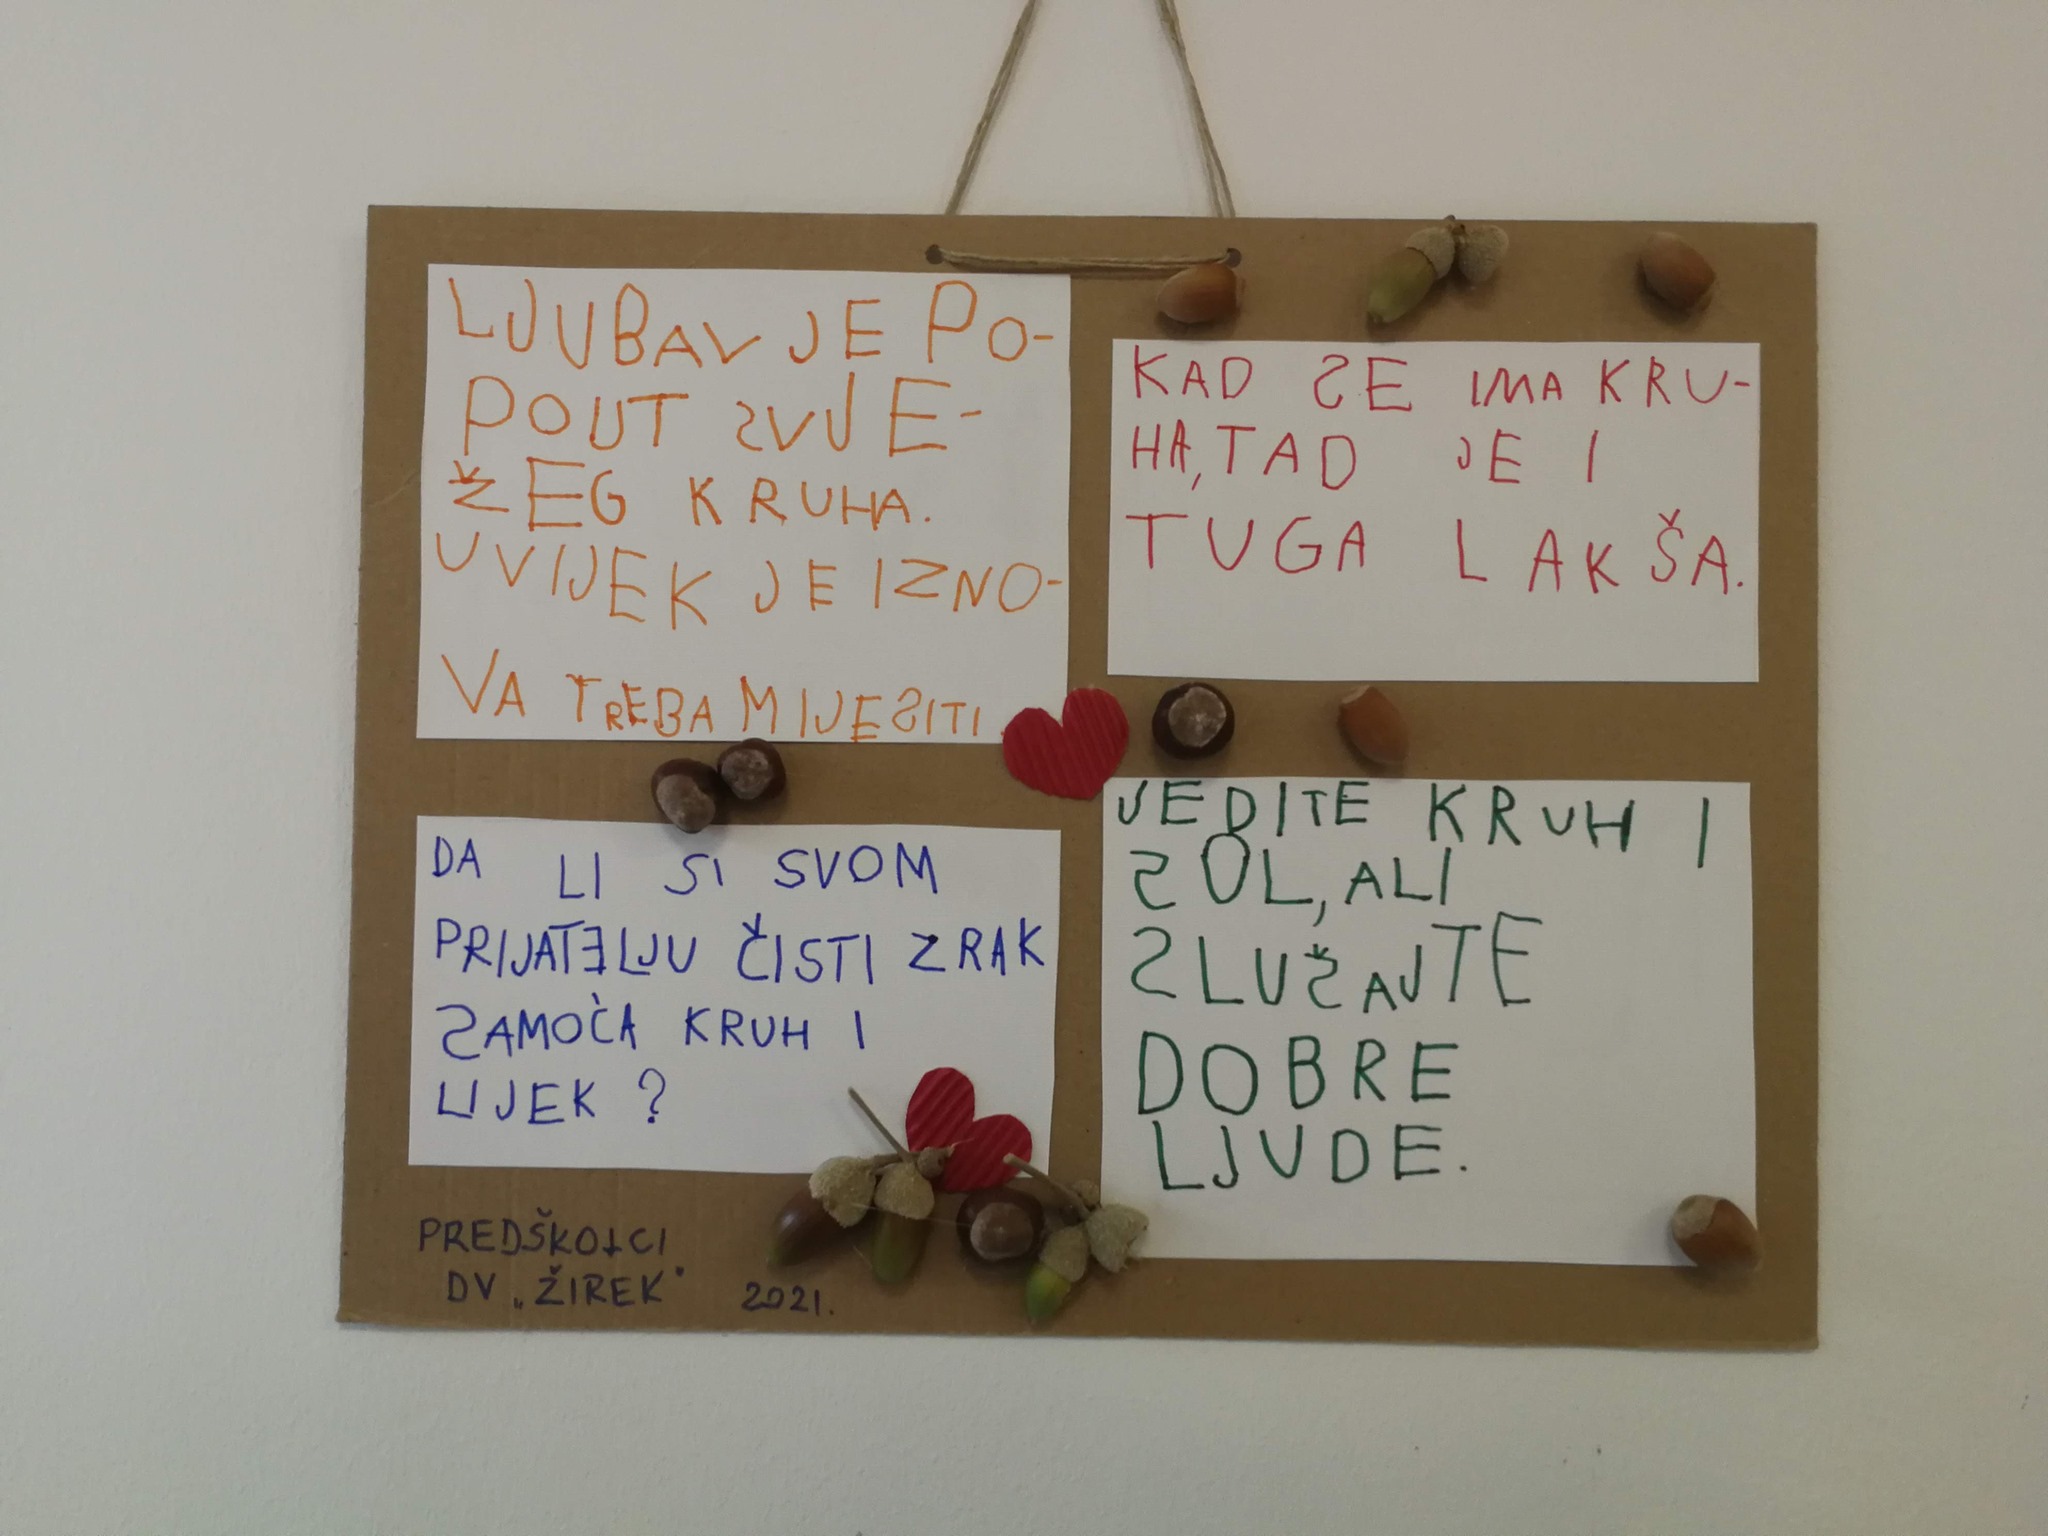 LJUBAV JE PO-
POUT SVJE-
ŽEG KRUHA.
UVIJEK JE IZNO-
VA TREBA MIJESITI.
KAD SE IMA KRU-
HA, TAD JE I
TUGA LAKŠA.
DA LI SI SVOM
PRIJATELJU ČISTI ZRAK
SAMOĆA KRUH I
LIJEK?
JEDITE KRUH I
SOL, ALI
SLUŠAJTE
DOBRE
LJUDE.
PREDŠKOLCI
DV „ŽIREK"
2021.